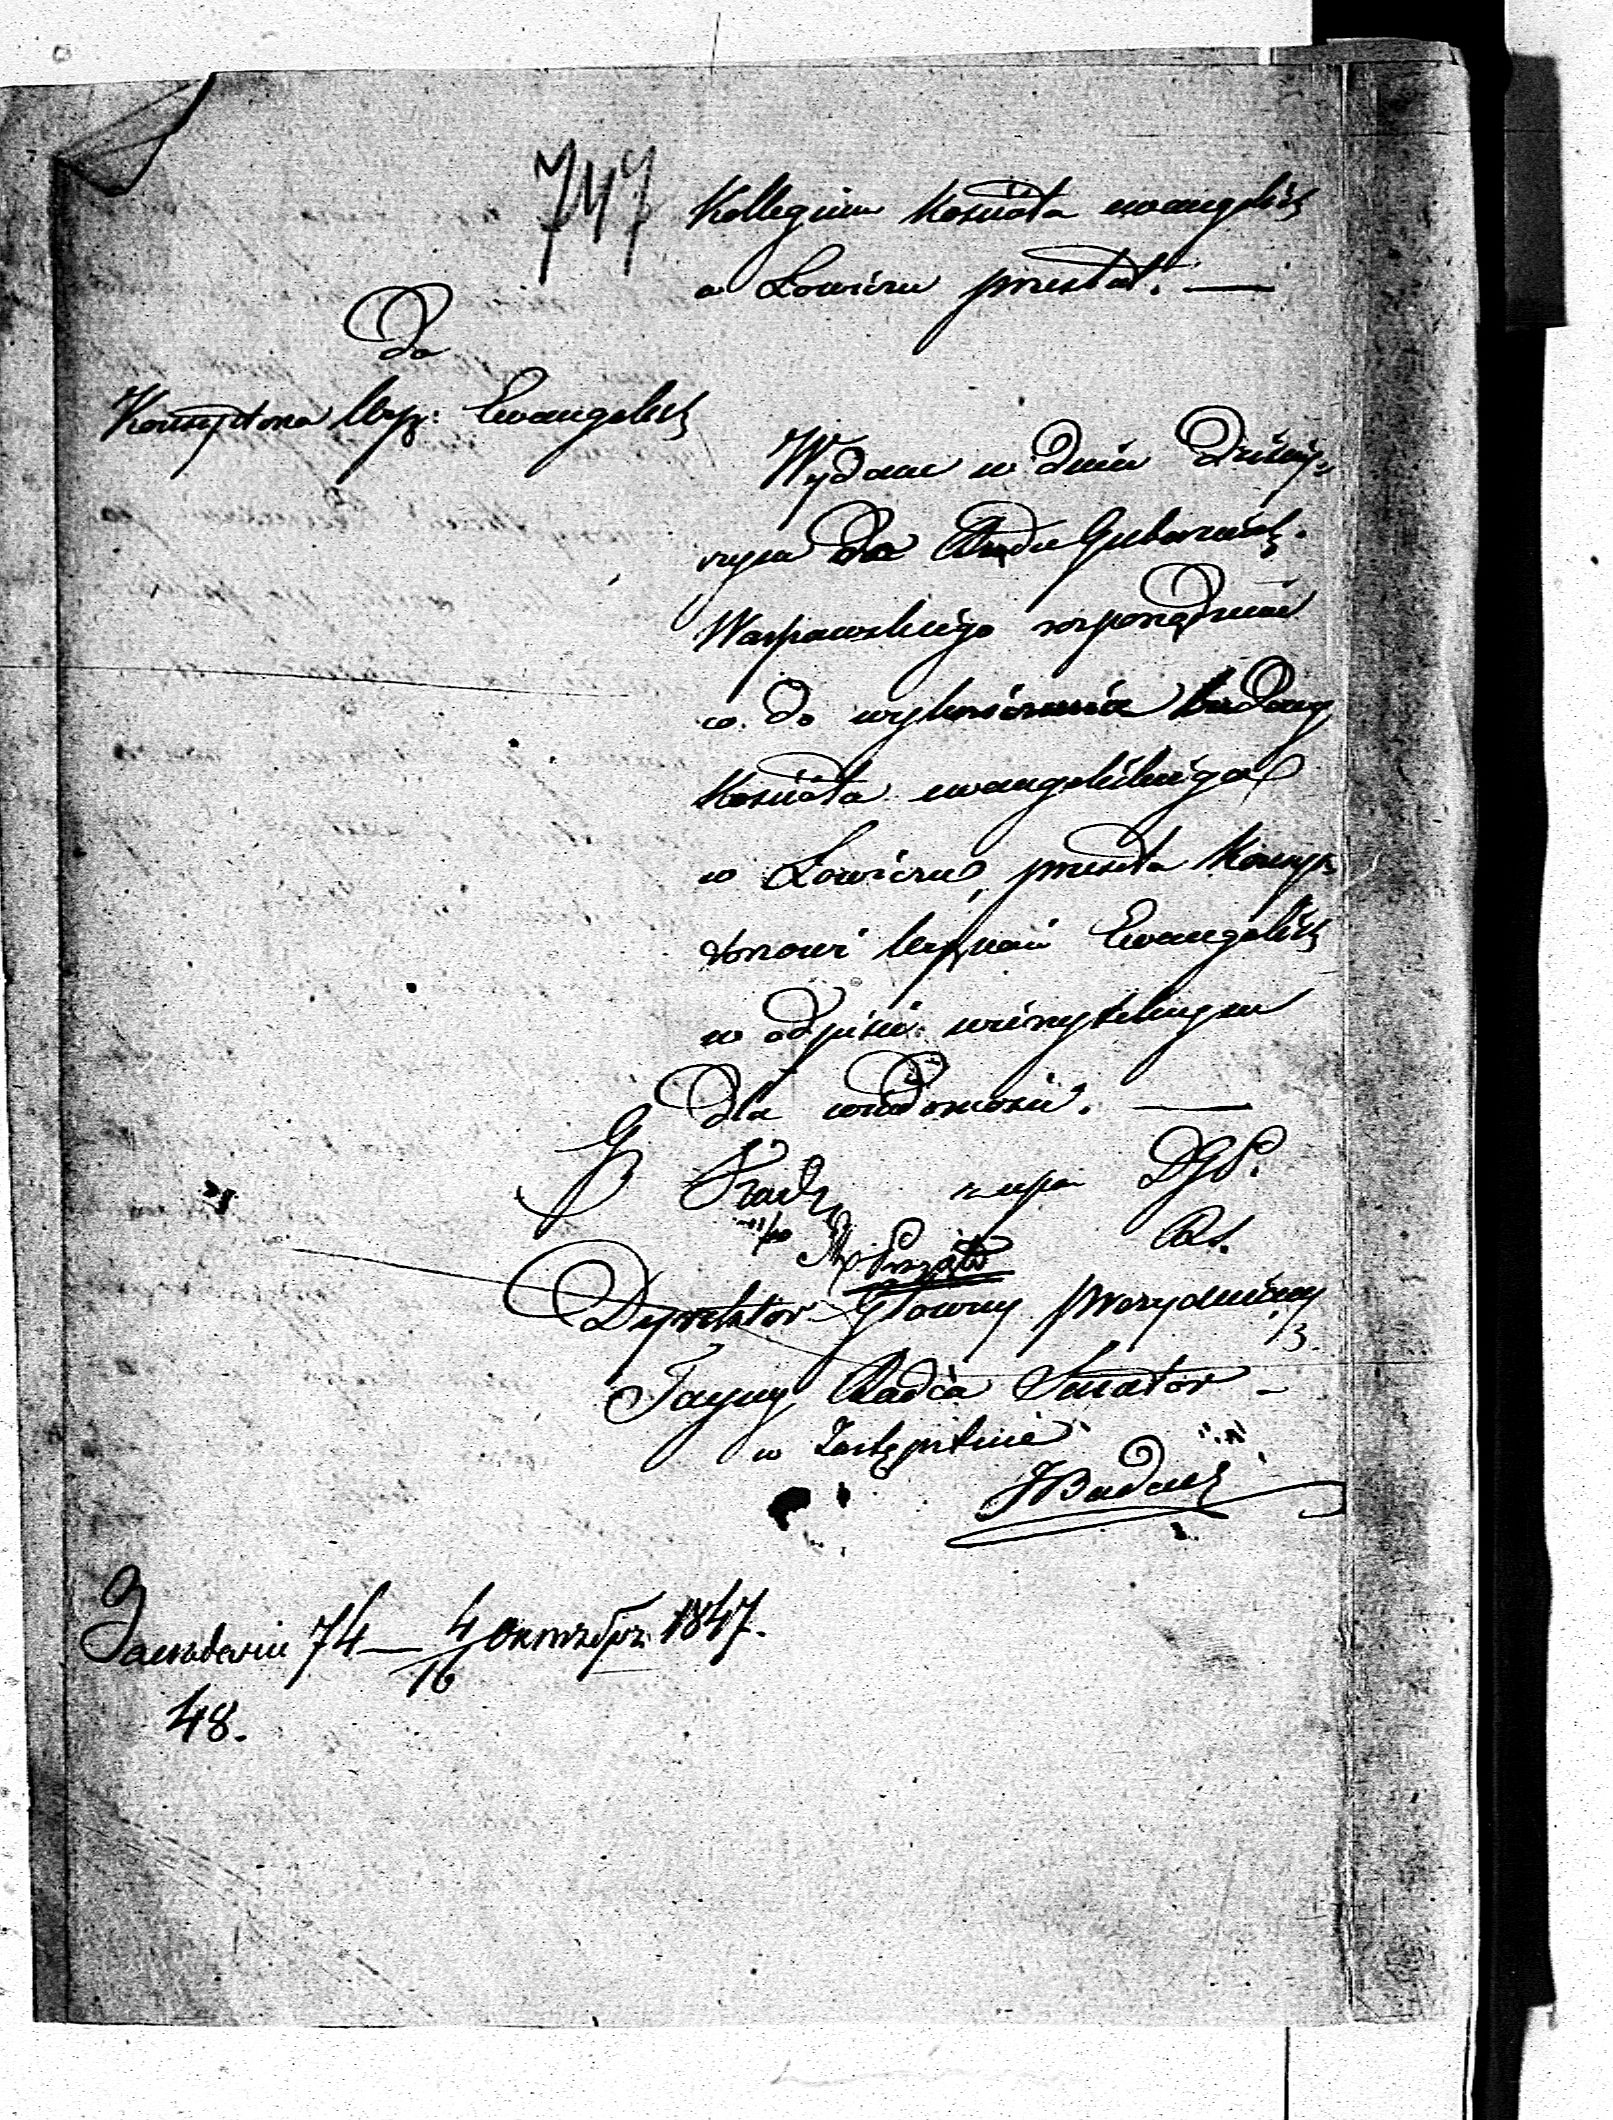 747
Kollegium Kościoła ewangelick
w Łowiczu przesłał. —
Do
Konsystorza Wyz: Ewangelick
Wydane w dniu dzisiey-
szym do Rządu Gubernials.
Warszawskiego rozporządzenie
co do wykończenia budowy
Kościoła ewangelickiego
w Łowiczu, przesyła Konsys-
torzowi Wyznań Ewangelick
w odpisie wierzytelnym
dla wiadomości. —
DGP.
Dyrektor Główny Prezyduiący
Tayny Radca Senator
w Zastępstwie
74 — 4/16 октября 1847.
48.